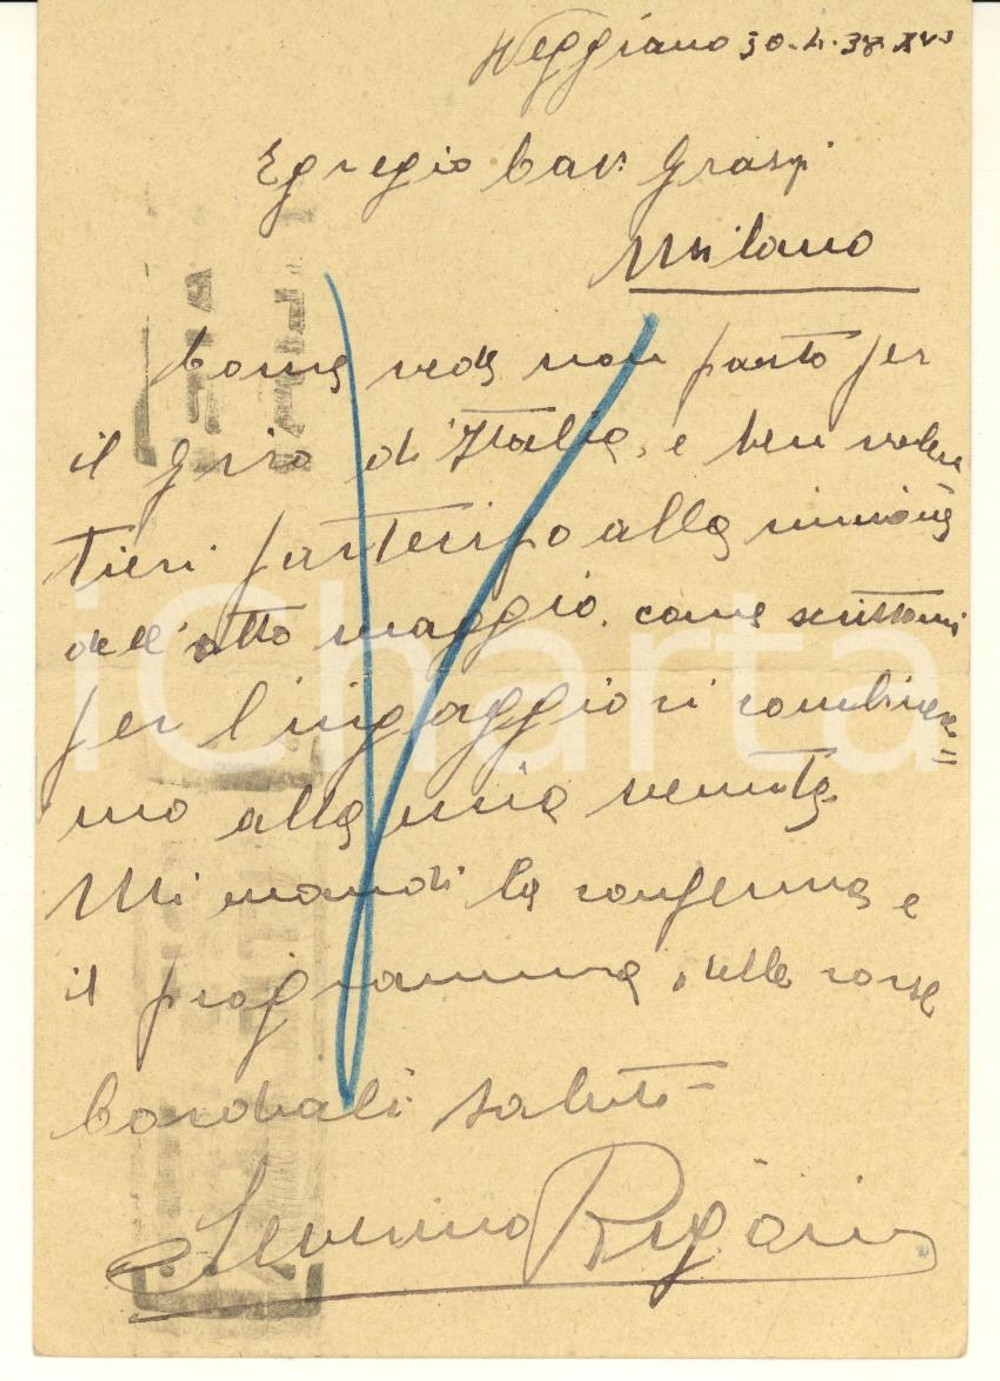 Veggiano 30-4-38 XVI
Egregio Cav. Graspi
Milano
Come vede non parto per
il giro di Italia, e ben volen
tieri partecipo alla riunione
dell'otto maggio. come scrittomi
per l'ingaggio ci combinere=
mo alla mia venuta.
Mi mandi la conferma e
il programma, delle corse
Cordiali saluti
Severino Rigoni
iCharta